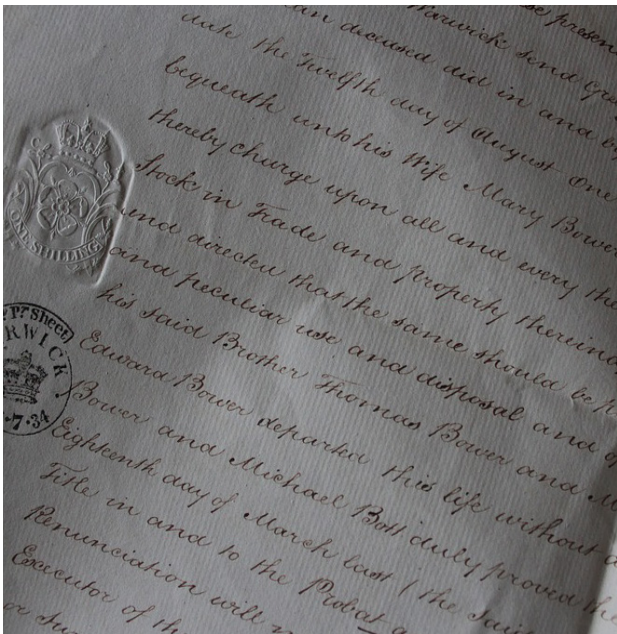 Warwick send Gre
an deceased did in and by
date the Twelfth day of August One
bequeath unto his Wife Mary Bower
thereby charge upon all and every the
Stock in Trade and property therein
and directed that the same should be p
and peculiar use and disposal and of
his said Brother Thomas Bower and M
Edward Bower departed this life without a
Bower and Michael Bott duly proved the
Eighteenth day of March last (the said
Title in and to the Probat a
Renunciation will
Executor of th
ONE SHILLING
Pr Sheet
RWICK.
.7.34